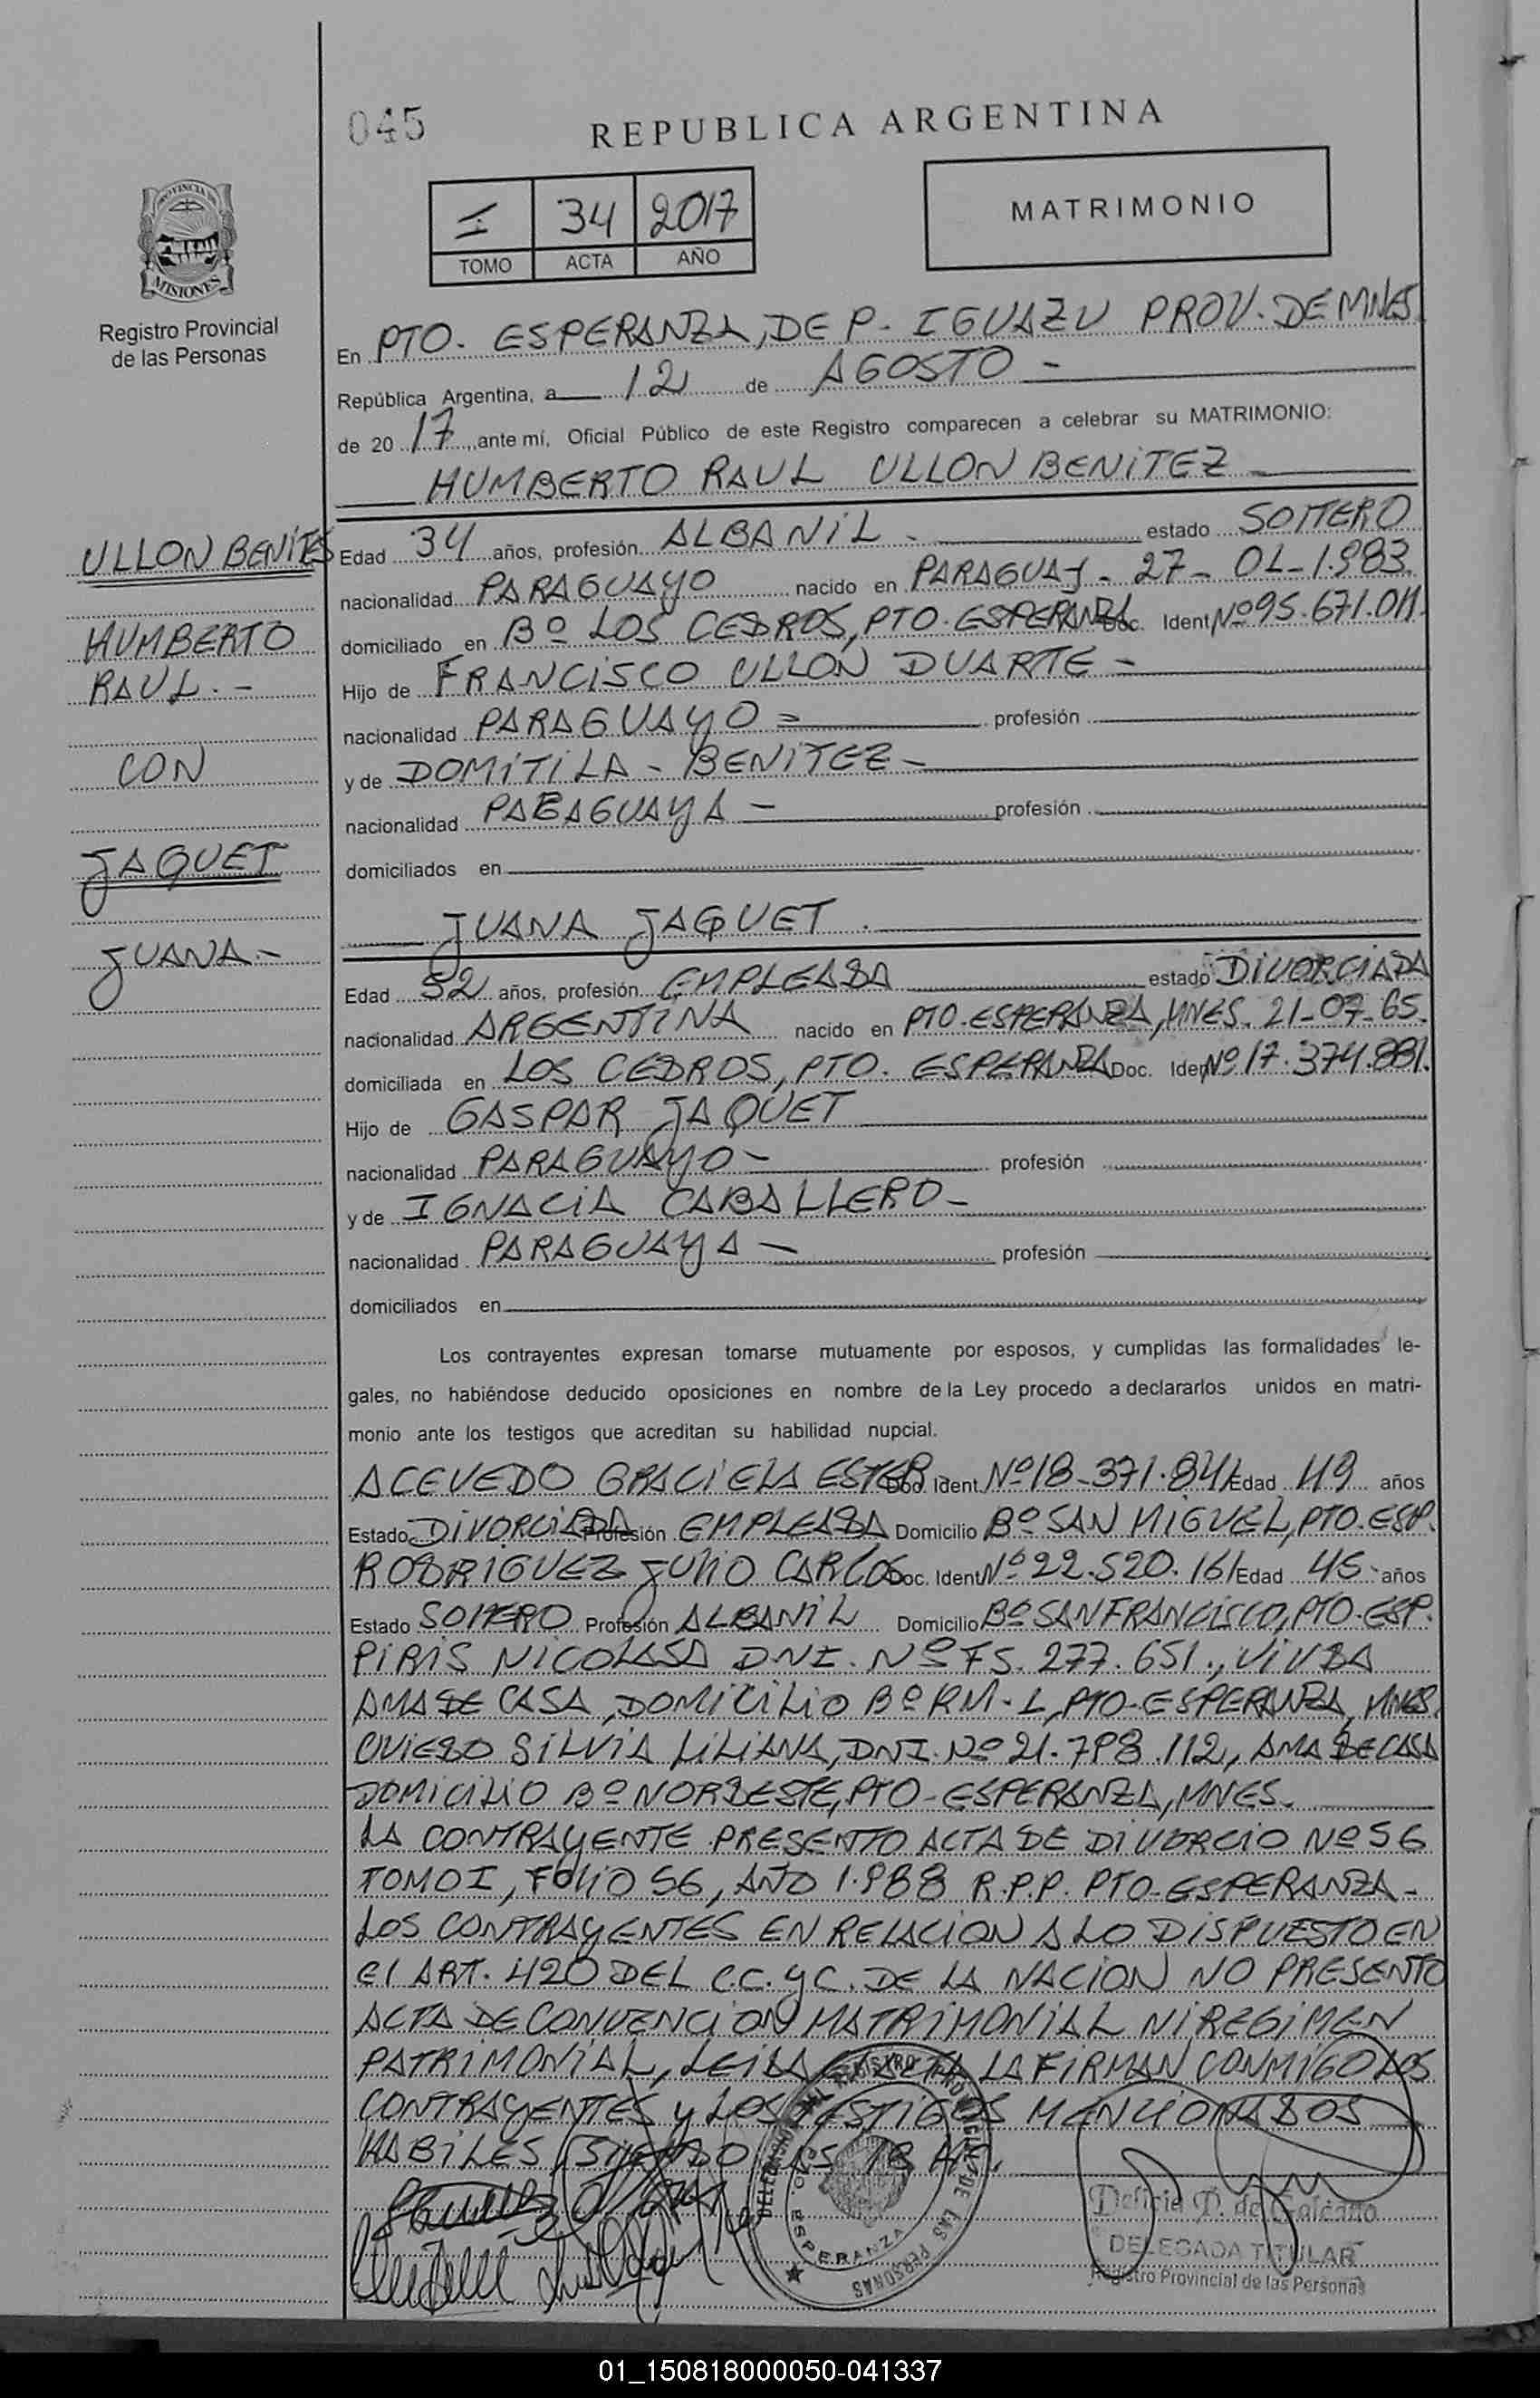 045
REPUBLICA ARGENTINA
I 34 2017
TOMO ACTA AÑO
MATRIMONIO
PROVINCIA DE
MISIONES
Registro Provincial
de las Personas
En PTO. ESPERANZA, DEP. IGUAZU PROV. DE MNES.
República Argentina, a 12 de AGOSTO -
de 2017, ante mí, Oficial Público de este Registro comparecen a celebrar su MATRIMONIO:
HUMBERTO RAUL ULLON BENITEZ
ULLON BENITES
HUMBERTO
RAUL.-
CON
JAQUET
JUANA.-
Edad 34 años, profesión ALBANIL - estado SOLTERO
nacionalidad PARAGUAYO nacido en PARAGUAY - 27 - 01 - 1.983.
domiciliado en Bº LOS CEDROS, PTO. ESPERANZA Doc. Ident Nº 95.671.011.
Hijo de FRANCISCO ULLON DUARTE -
nacionalidad PARAGUAYO - profesión
y de DOMITILA - BENITEZ -
nacionalidad PARAGUAYA - profesión
domiciliados en
JUANA JAQUET.
Edad 52 años, profesión EMPLEADA estado DIVORCIADA
nacionalidad ARGENTINA nacido en PTO. ESPERANZA, MNES. 21-07-65.
domiciliada en LOS CEDROS, PTO. ESPERANZA Doc. Iden Nº 17.374.881.
Hijo de GASPAR JAQUET
nacionalidad PARAGUAYO - profesión
y de IGNACIA CABALLERO -
nacionalidad PARAGUAYA - profesión
domiciliados en
Los contrayentes expresan tomarse mutuamente por esposos, y cumplidas las formalidades le-
gales, no habiéndose deducido oposiciones en nombre de la Ley procedo a declararlos unidos en matri-
monio ante los testigos que acreditan su habilidad nupcial.
ACEVEDO GRACIELA ESTER Doc. Ident Nº 18-371.841 Edad 49 años
Estado DIVORCIADA Profesión EMPLEADA Domicilio Bº SAN MIGUEL, PTO. ESP.
RODRIGUEZ JULIO CARLOS Doc. Ident Nº 22.520.161 Edad 45 años
Estado SOLTERO Profesión ALBANIL Domicilio Bº SAN FRANCISCO, PTO. ESP.
PIRIS NICOLASA DNI. Nº F5.277.651., VIUDA
AMA DE CASA, DOMICILIO Bº RM-L, PTO-ESPERANZA, MNES.
OVIEDO SILVIA LILIANA, DNI. Nº 21.798.112, AMA DE CASA
DOMICILIO Bº NORDESTE, PTO-ESPERANZA, MNES.
LA CONTRAYENTE PRESENTO ACTA DE DIVORCIO Nº 56
TOMO I, FOLIO 56, AÑO 1.988 R.P.P. PTO-ESPERANZA-
LOS CONTRAYENTES EN RELACION A LO DISPUESTO EN
El ART. 420 DEL C.C. y C. DE LA NACION NO PRESENTO
ACTA DE CONVENCION MATRIMONIAL NI REGIMEN
PATRIMONIAL, LEIDA EL ACTA LA FIRMAN CONMIGO LOS
CONTRAYENTES y LOS TESTIGOS MENCIONADOS
HABILES, SIENDO LAS 18 HS.
DELEGACION DEL REGISTRO PROVINCIAL DE LAS PERSONAS
PTO. ESPERANZA
Delicia D. de Galeano
DELEGADA TITULAR
Registro Provincial de las Personas
01_150818000050-041337